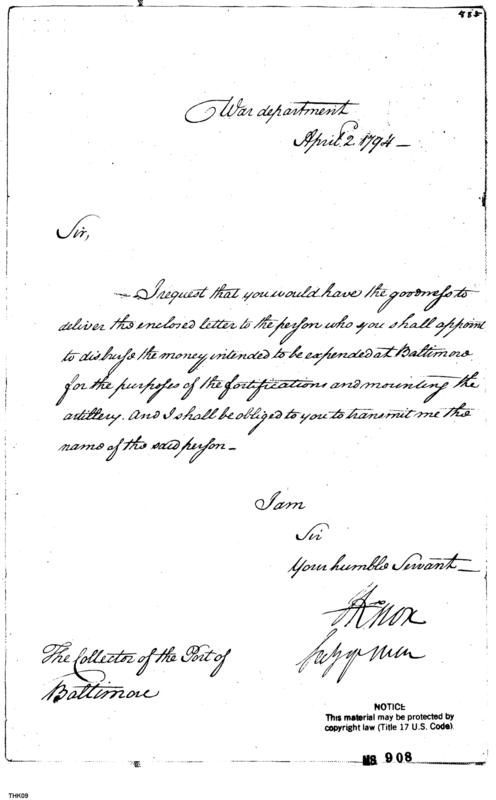 War department
April 2 1794 —
Sir,
— I request that you would have the goodness to
deliver the enclosed letter to the person who you shall appoint
to disburse the money intended to be expended at Baltimore
for the purposes of the fortifications and mounting the
artillery. And I shall be obliged to you to transmit me the
name of the said person —
I am
Sir
Your humble Servant —
HKnox
The Collector of the Port of
Baltimore
NOTICE
This material may be protected by
copyright law (Title 17 U.S. Code).
MS 908
THK09